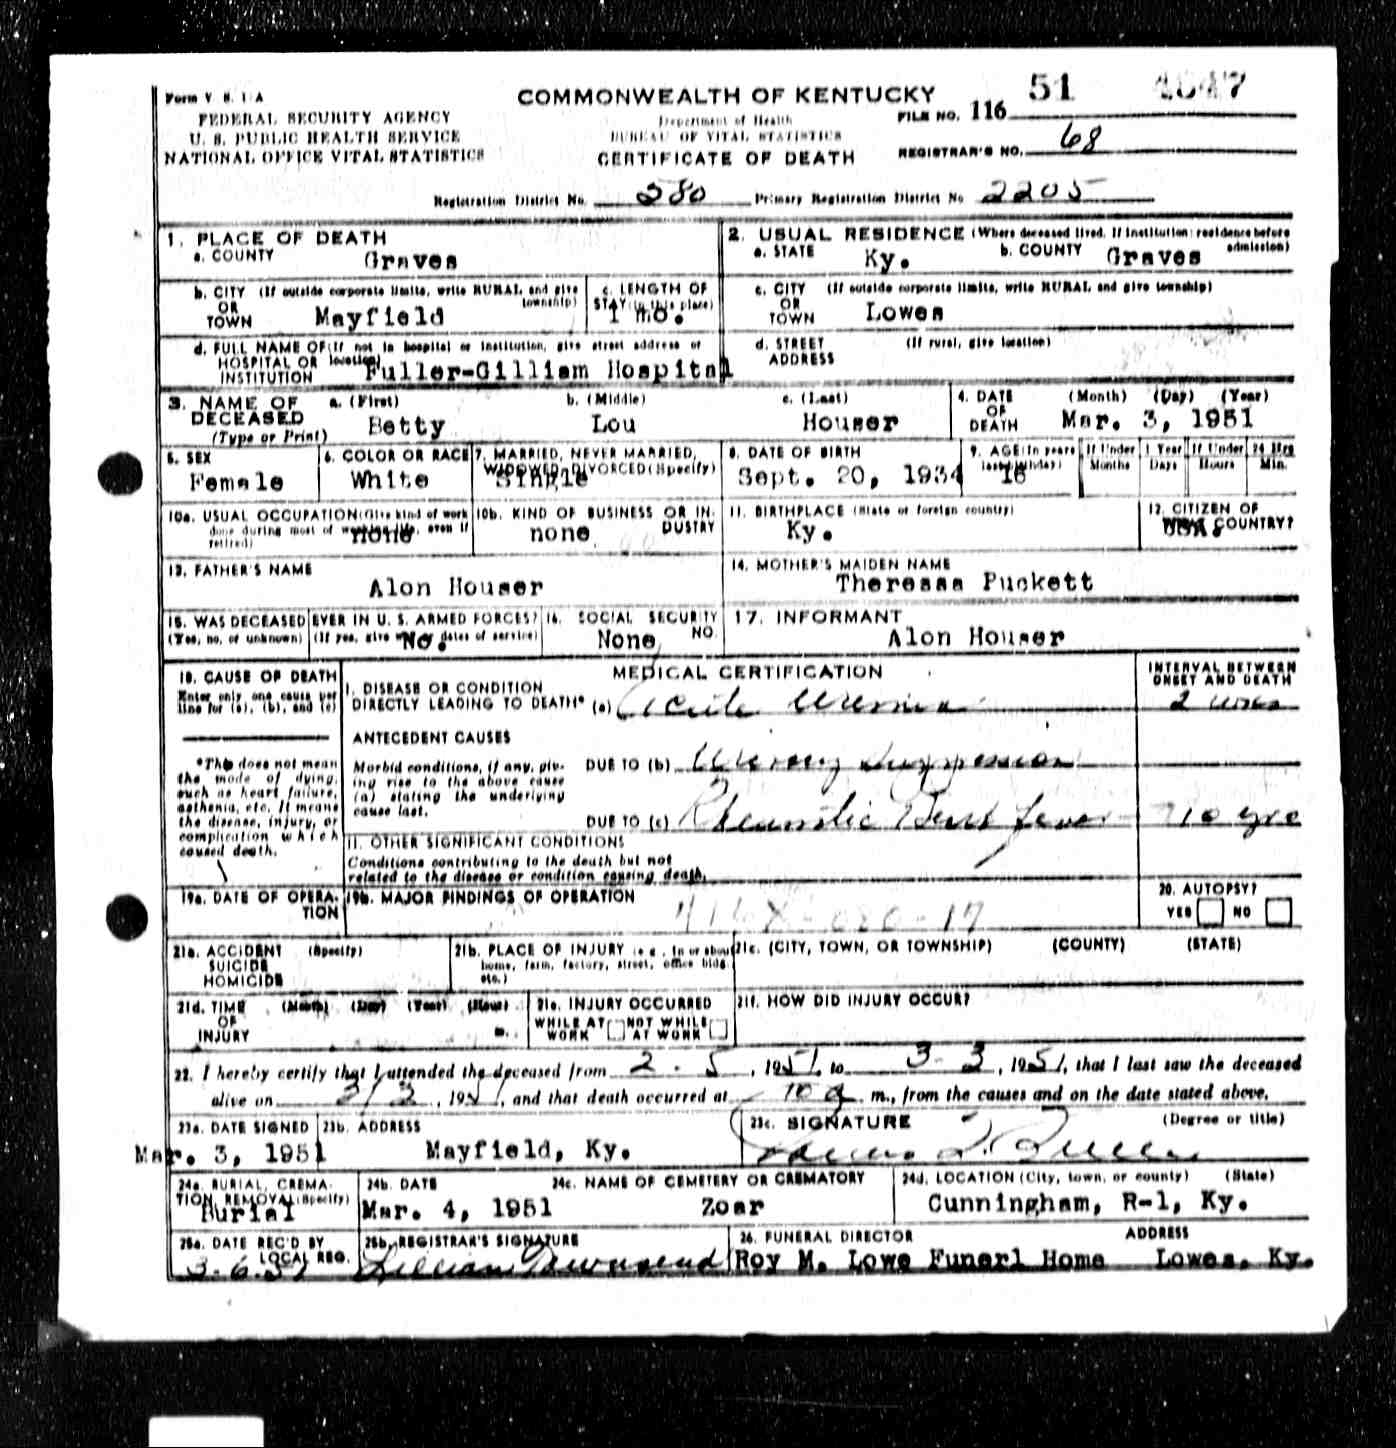 Form V. S. 1-A
FEDERAL SECURITY AGENCY
U. S. PUBLIC HEALTH SERVICE
NATIONAL OFFICE VITAL STATISTICS
COMMONWEALTH OF KENTUCKY
Department of Health
BUREAU OF VITAL STATISTICS
CERTIFICATE OF DEATH
FILE NO. 116 51
REGISTRAR'S NO. 68
Registration District No. 380 Primary Registration District No 2205
1. PLACE OF DEATH
a. COUNTY Graves
2. USUAL RESIDENCE (Where deceased lived. If institution: residence before admission)
a. STATE Ky. b. COUNTY Graves
b. CITY (If outside corporate limits, write RURAL and give township)
OR
TOWN Mayfield
c. LENGTH OF
STAY (in this place)
1 mo.
c. CITY (If outside corporate limits, write RURAL and give township)
OR
TOWN Lowes
d. FULL NAME OF (If not in hospital or institution, give street address or location)
HOSPITAL OR
INSTITUTION Fuller-Gilliam Hospital
d. STREET (If rural, give location)
ADDRESS
3. NAME OF DECEASED (Type or Print)
a. (First) b. (Middle) c. (Last)
Betty Lou Houser
4. DATE OF DEATH (Month) (Day) (Year)
Mar. 3, 1951
5. SEX
Female
6. COLOR OR RACE
White
7. MARRIED, NEVER MARRIED, WIDOWED, DIVORCED (Specify)
Single
8. DATE OF BIRTH
Sept. 20, 1934
9. AGE (In years last birthday)
16
If Under 1 Year
Months Days
If Under 24 Hrs
Hours Min.
10a. USUAL OCCUPATION (Give kind of work done during most of working life, even if retired)
none
10b. KIND OF BUSINESS OR INDUSTRY
none
11. BIRTHPLACE (State or foreign country)
Ky.
12. CITIZEN OF WHAT COUNTRY?
USA.
13. FATHER'S NAME
Alon Houser
14. MOTHER'S MAIDEN NAME
Theressa Puckett
15. WAS DECEASED EVER IN U. S. ARMED FORCES?
(Yes, no, or unknown) (If yes, give war or dates of service)
No.
16. SOCIAL SECURITY NO.
None
17. INFORMANT
Alon Houser
18. CAUSE OF DEATH
Enter only one cause per line for (a), (b), and (c)
*This does not mean the mode of dying, such as heart failure, asthenia, etc. It means the disease, injury, or complication which caused death.
MEDICAL CERTIFICATION
INTERVAL BETWEEN ONSET AND DEATH
I. DISEASE OR CONDITION
DIRECTLY LEADING TO DEATH* (a) Acute Uremia 2 wks
ANTECEDENT CAUSES
Morbid conditions, if any, giving rise to the above cause (a) stating the underlying cause last.
DUE TO (b) Urinary Suppression
DUE TO (c) Rheumatic Heart fever 10 yrs
II. OTHER SIGNIFICANT CONDITIONS
Conditions contributing to the death but not related to the disease or condition causing death.
19a. DATE OF OPERATION
19b. MAJOR FINDINGS OF OPERATION
20. AUTOPSY?
YES NO
21a. ACCIDENT (Specify)
SUICIDE
HOMICIDE
21b. PLACE OF INJURY (e.g., in or about home, farm, factory, street, office bldg. etc.)
21c. (CITY, TOWN, OR TOWNSHIP) (COUNTY) (STATE)
21d. TIME (Month) (Day) (Year) (Hour)
OF
INJURY m.
21e. INJURY OCCURRED
WHILE AT WORK NOT WHILE AT WORK
21f. HOW DID INJURY OCCUR?
22. I hereby certify that I attended the deceased from 2 - 5, 1951, to 3 - 3, 1951, that I last saw the deceased
alive on 3/3, 1951, and that death occurred at 10 a m., from the causes and on the date stated above.
23a. DATE SIGNED
Mar. 3, 1951
23b. ADDRESS
Mayfield, Ky.
23c. SIGNATURE (Degree or title)
24a. BURIAL, CREMATION, REMOVAL (Specify)
Burial
24b. DATE
Mar. 4, 1951
24c. NAME OF CEMETERY OR CREMATORY
Zoar
24d. LOCATION (City, town, or county) (State)
Cunningham, R-1, Ky.
25a. DATE REC'D BY LOCAL REG.
3-6-51
25b. REGISTRAR'S SIGNATURE
Lillian Townsend
26. FUNERAL DIRECTOR ADDRESS
Roy M. Lowe Funerl Home Lowes, Ky.